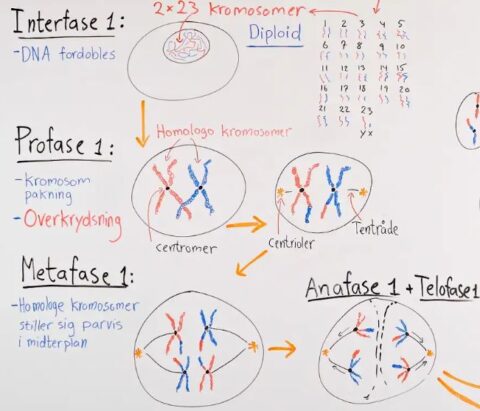 Interfase 1:
- DNA fordobles
2×23 kromosomer
Diploid
1 2 3 4 5
6 7 8 9 10
11 12 13 14 15
16 17 18 19 20
21 22 23
y x
Profase 1:
- Kromosom
pakning
- Overkrydsning
Homologe kromosomer
centromer
Centrioler
Tentråde
Metafase 1:
- Homologe kromosomer
stiller sig parvis
i midterplan
Anafase 1 + Telofase 1